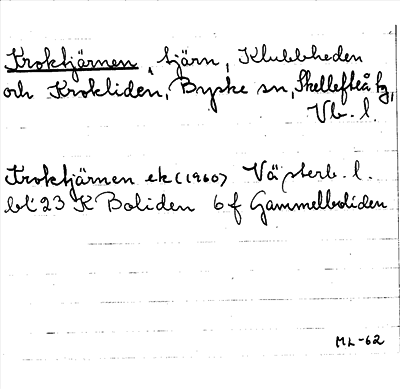 Kroktjärnen, tjärn, Klubbheden
och Krokliden, Byske sn, Skellefteå tg,
Vb. l.
Kroktjärnen ek (1960) Västerb. l.
bl 23 K Boliden 6 f Gammelboliden
ML-62